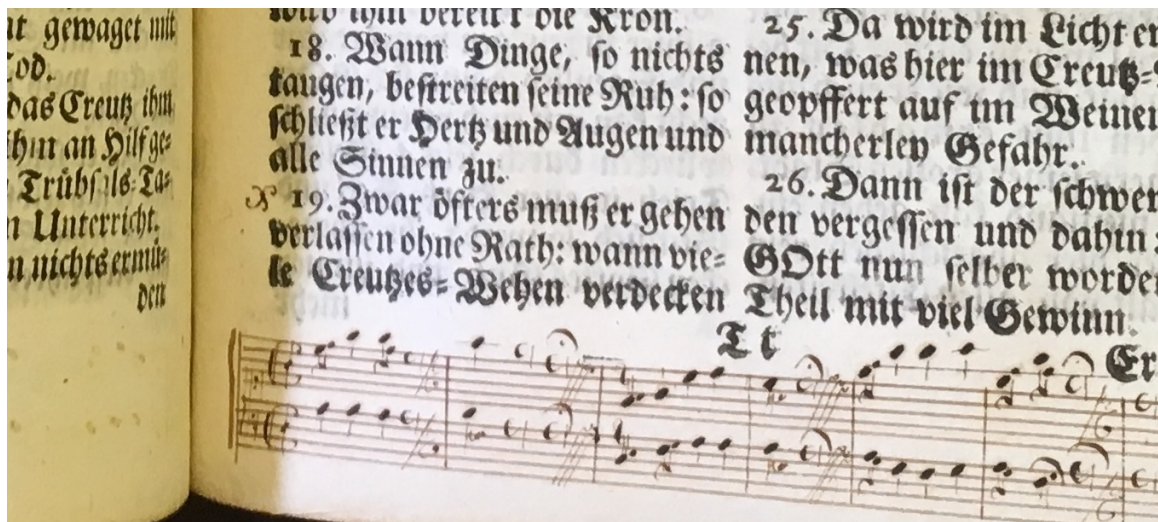 at gewaget mit
Tod.
das Creutz ihm
ihm an Hilf ge-
Trübsals-Ta-
Unterricht.
nichts ermü-
den
wird ihm bereit't die Kron.
18. Wann Dinge, so nichts
taugen, bestreiten seine Ruh: so
schließt er Hertz und Augen und
alle Sinnen zu.
19. Zwar öfters muß er gehen
verlassen ohne Rath: wann vie-
le Creutzes-Wehen verdecken
25. Da wird im Licht er
nen, was hier im Creutz-
geopffert auf im Weinen
mancherley Gefahr.
26. Dann ist der schwer
den vergessen und dahin:
GOtt nun selber worde
Theil mit viel Gewinn.
T t
Er